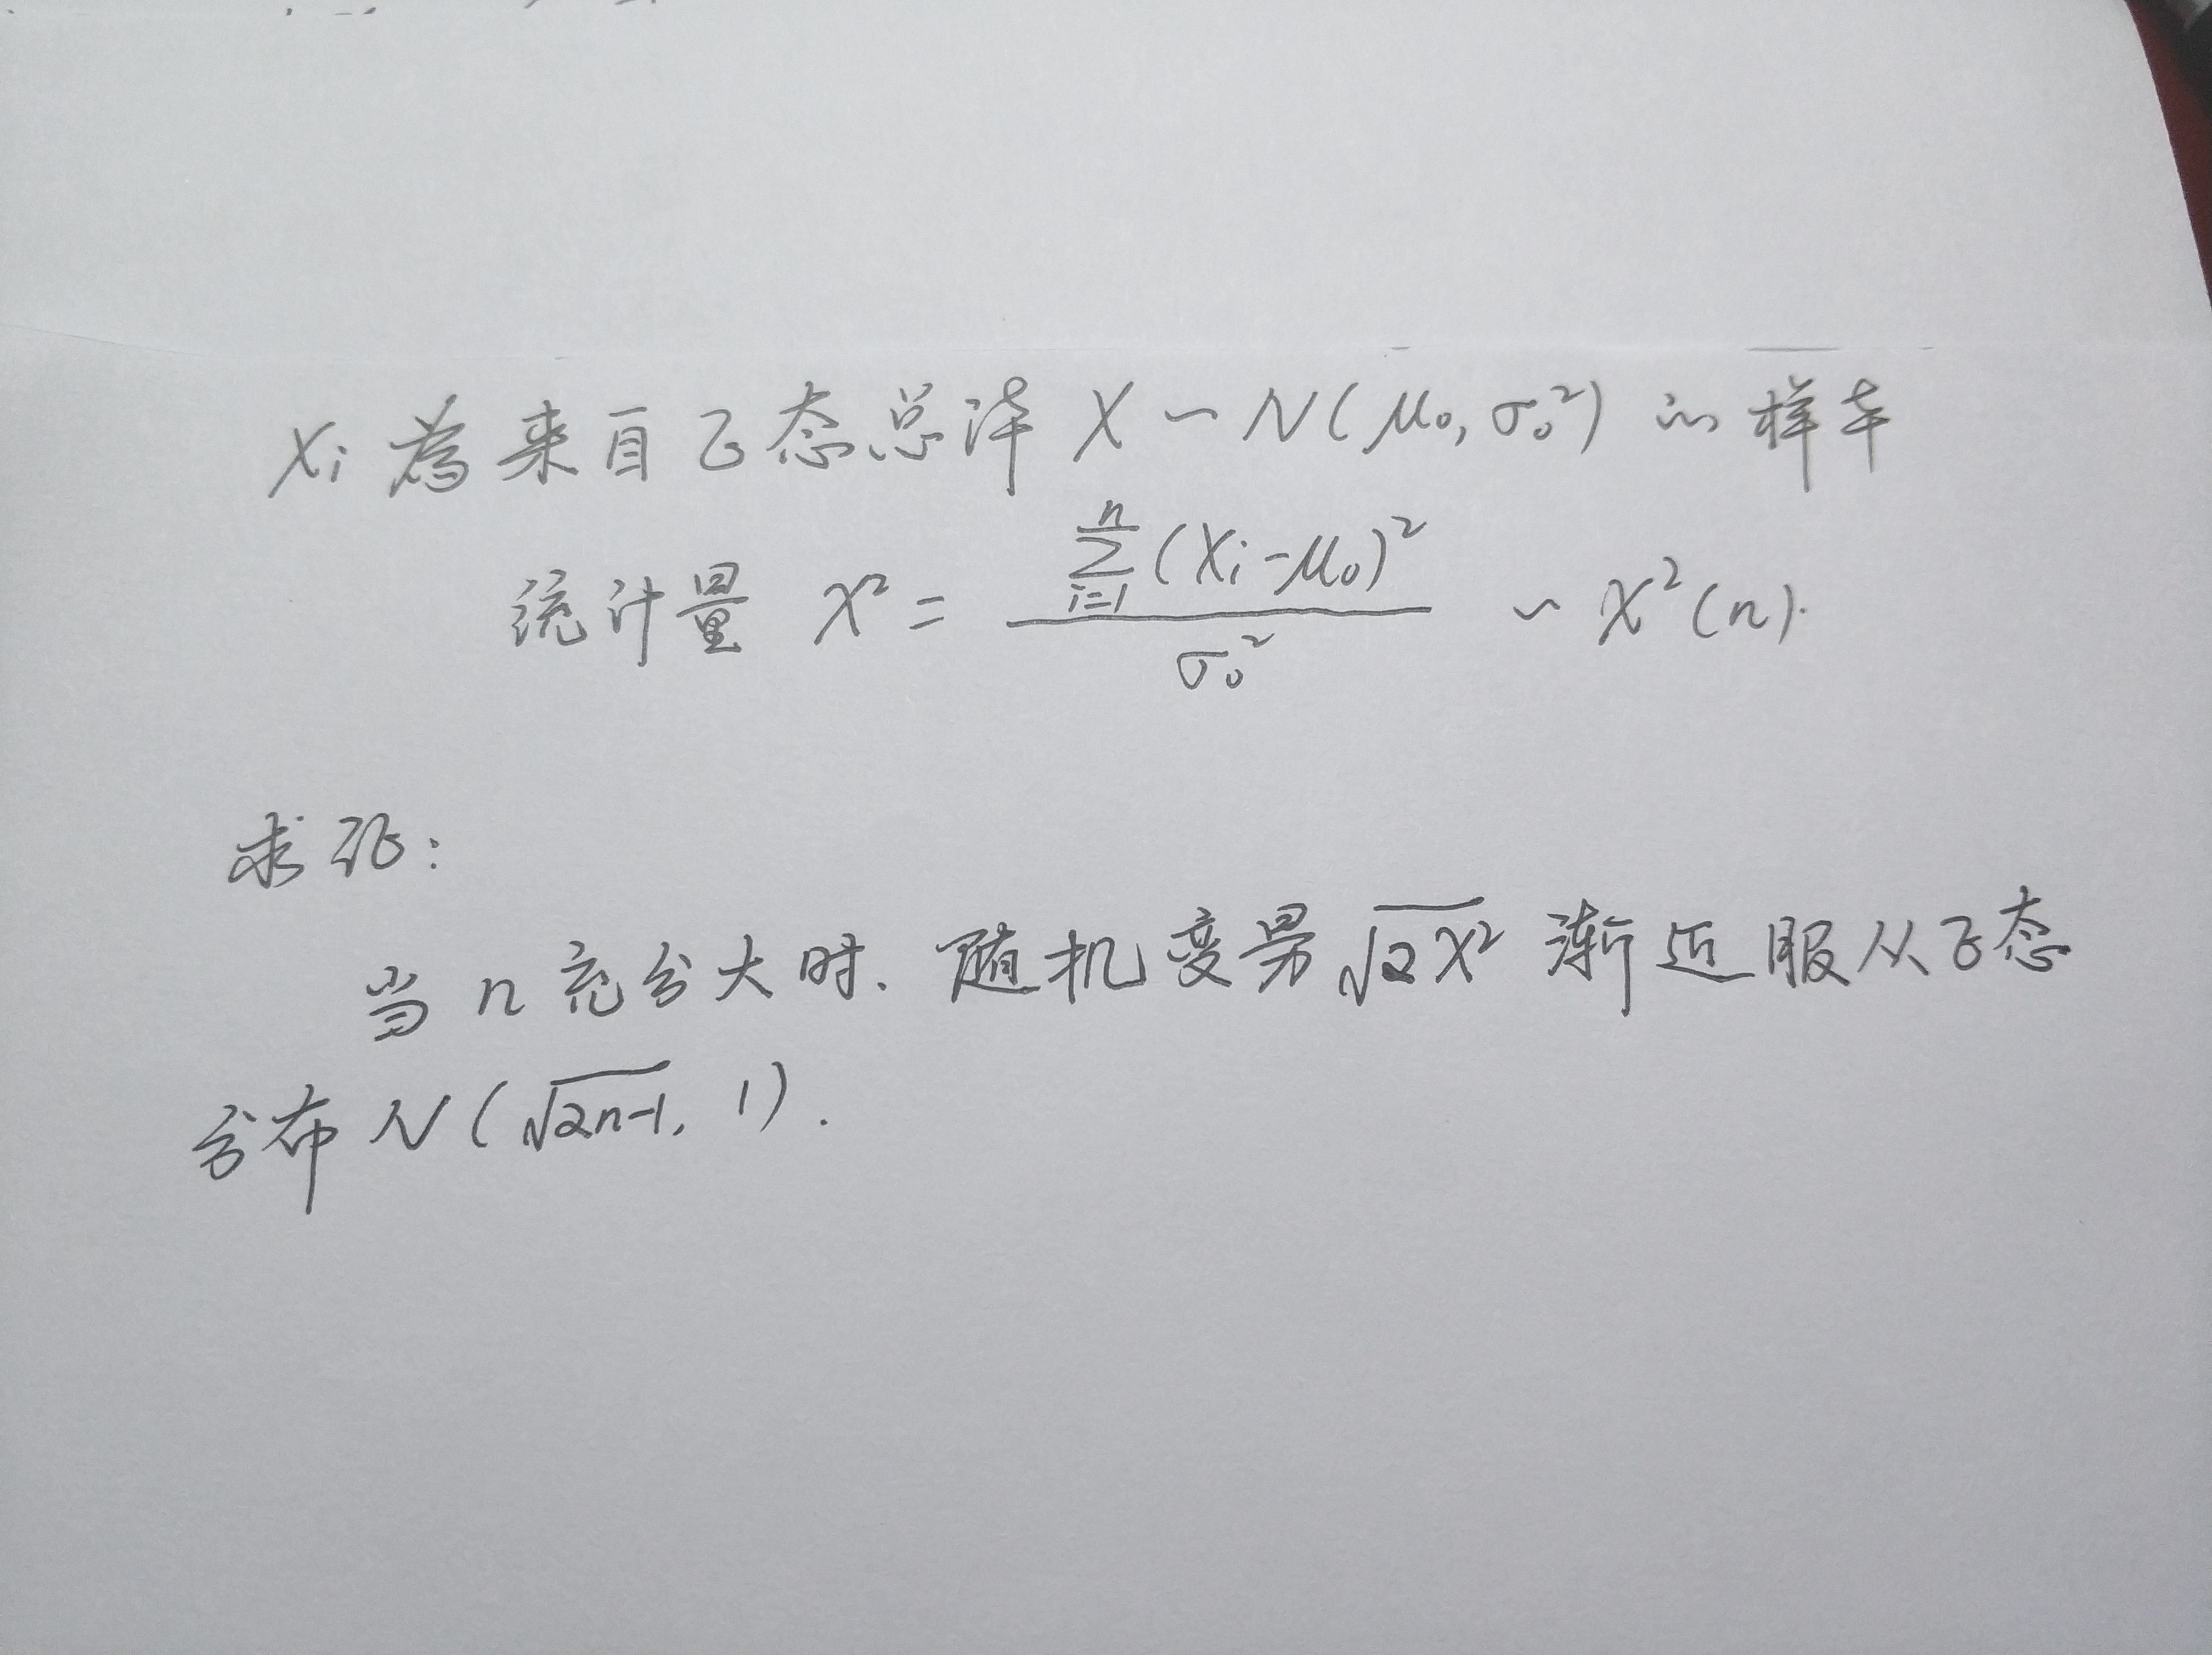 Xi 为来自正态总体 X ~ N(μ₀, σ₀²) 的样本
统计量 χ² = \frac{\sum_{i=1}^{n}(Xi-μ₀)²}{σ₀²} ~ χ²(n).
求证:
当 n 充分大时, 随机变量 √(2χ²) 渐近服从正态
分布 N(√(2n-1), 1).